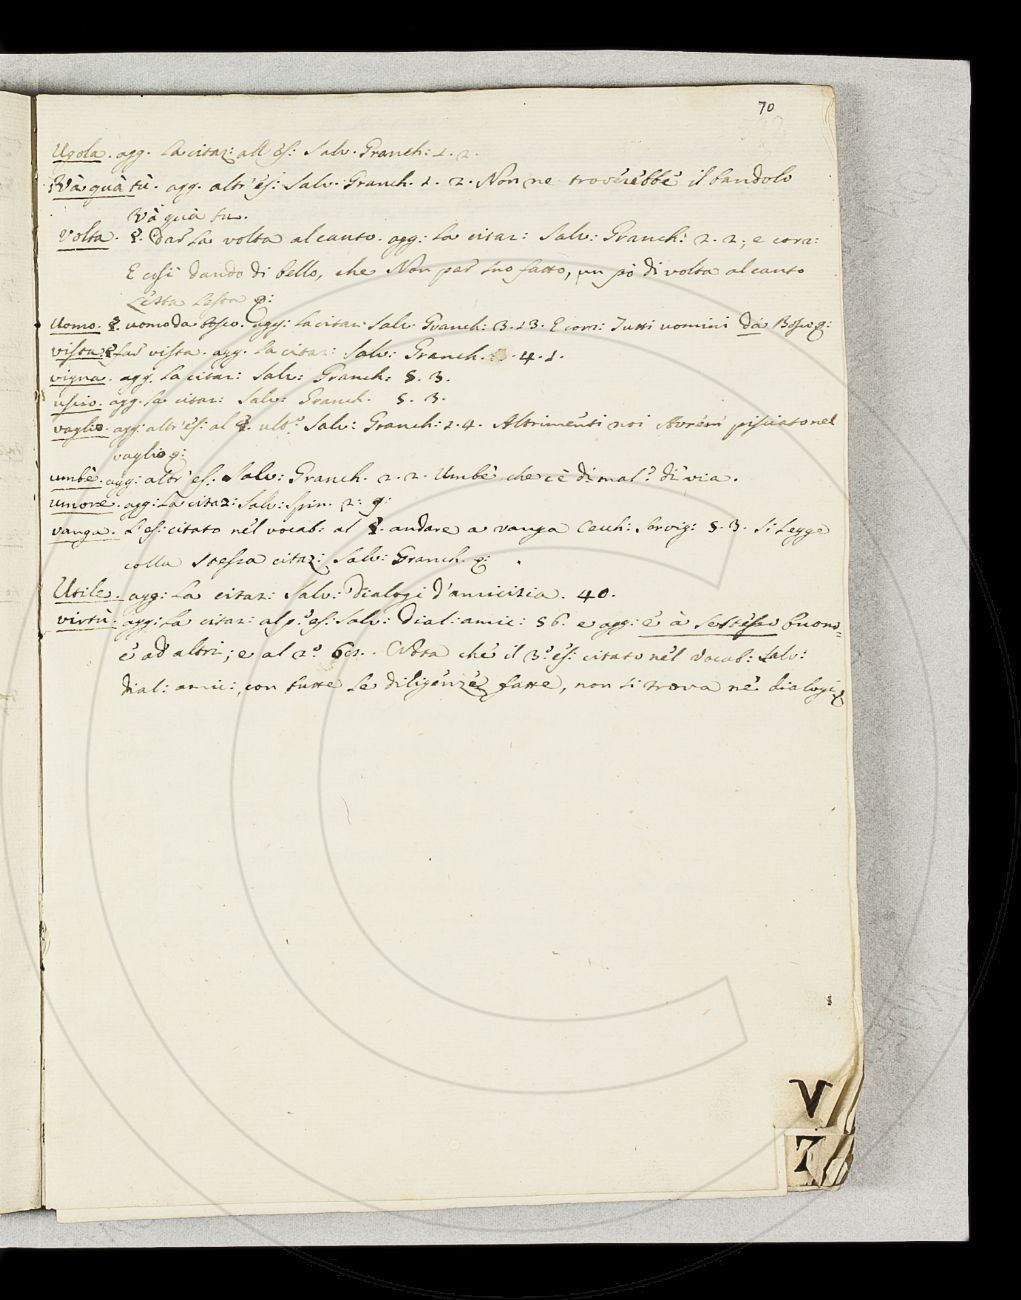 70
Ugola. agg. la citaz: all'es: Salv. Granch: 1. 2.
Và quà tù. agg. altr'es: Salv. Granch. 1. 2. Non ne troverebbe il bandolo
Và quà tu.
Volta. §. Dar la volta al canto. agg: la citaz: Salv: Granch: 2. 2; e corr:
E così dando di bello, che Non par suo fatto, un pò di volta al canto
Lesta Lesta &:
Uomo. §. uomo da bosco. agg: la citaz: Salv. Granch: 3. 13. E corr: Tutti uomini da Bosco &:
vista. § far vista. agg. la citaz: Salv: Granch. 4. 1.
vigna. agg. la citaz: Salv: Granch: 5. 3.
uscio. agg. la citaz: Salv: Granch. 5. 3.
vaglio. agg: altr'es: al §. ult.º Salv: Granch: 2. 4. Altrimenti noi Avrem pisciato nel
vaglio &:
umbè. agg: altr'es: Salv: Granch. 2. 2. Umbè che c'è di mal? dì via.
umore. agg: la citaz: Salv: Spin. 2: 9:
vanga. L'es: citato nel vocab: al §. andare a vanga Cecch: Servig: 5. 3. si legge
colla stessa citaz: Salv: Granch. &:
Utile. agg: la citaz: Salv: Dialogi d'amicizia. 40.
virtù. agg: la citaz: al p.º es: Salv: Dial: amic: 56. e agg: è à Sestesso buono
e ad altri; e al 2.º Nota che il 3.º es: citato nel vocab: Salv:
Dial: amic:, con tutte le diligenze fatte, non si trova ne' dialogi
V
Z